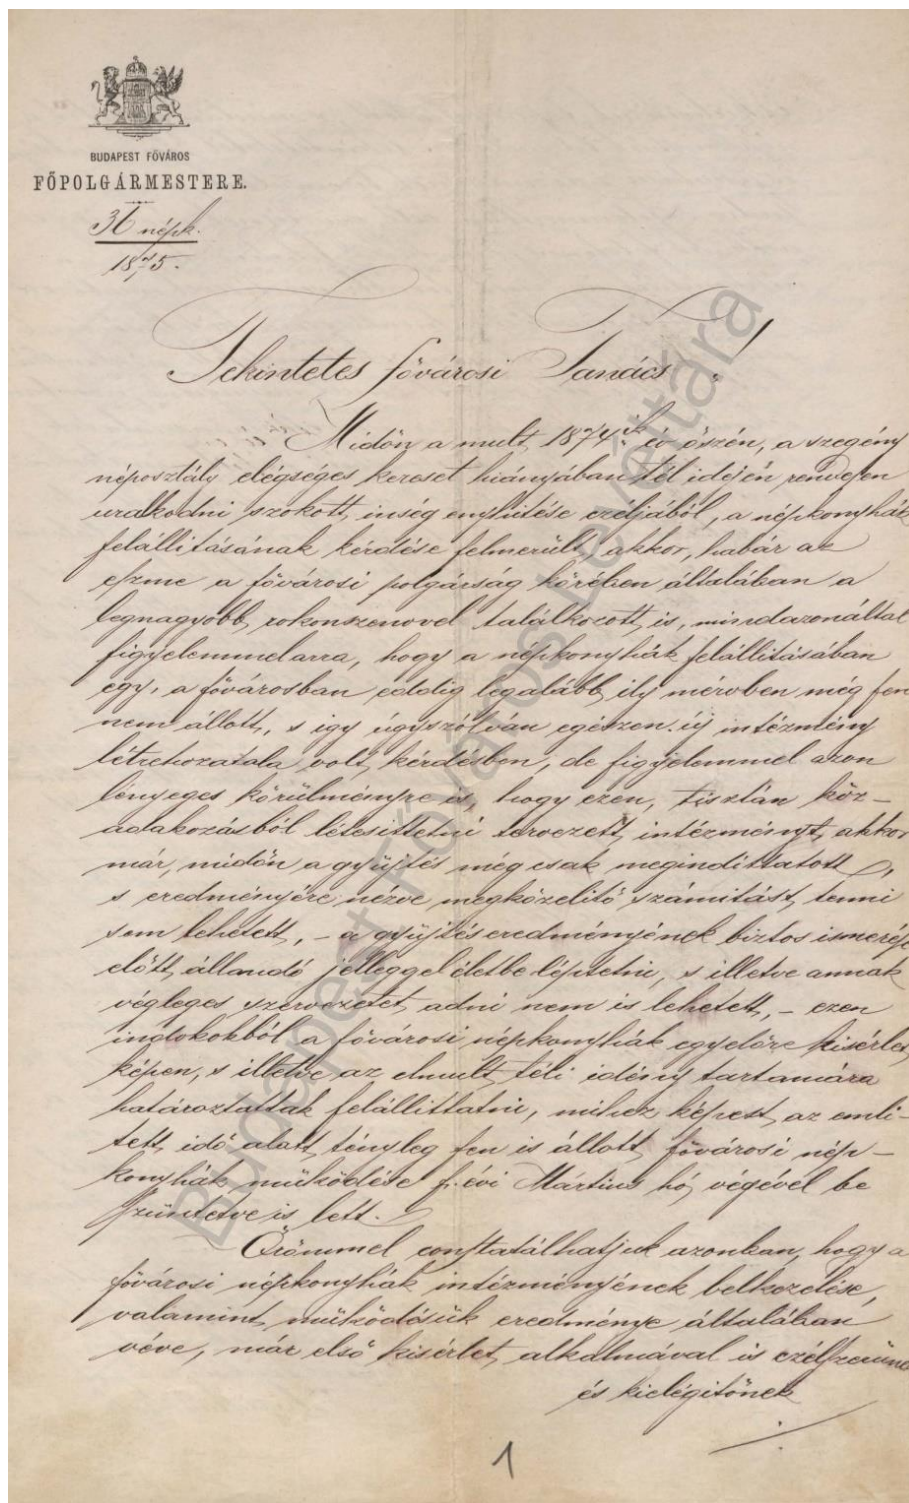 BUDAPEST FŐVÁROS
FŐPOLGÁRMESTERE.
36 népk.
1875.
Tekintetes fővárosi Tanács!
Midőn a mult 1874ik év őszén, a szegény
néposztály elégséges kereset hiányában tél idején rendesen
uralkodni szokott inség enyhitése czéljából, a népkonyhák
felállitásának kérdése felmerült, akkor, habár az
eszme a fővárosi polgárság körében általában a
legnagyobb rokonszenvvel találkozott is, mindazonáltal
figyelemmel arra, hogy a népkonyhák felállitásában
egy, a fővárosban eddig legalább ily mérvben még fen
nem állott, s igy úgyszólván egészen új intézmény
létrehozatala volt kérdésben, de figyelemmel azon
lényeges körülményre is, hogy ezen, tisztán köz-
adakozásból létesittetni tervezett intézményt, akkor
már, midőn a gyüjtés még csak megindittatott,
s eredményére nézve megközelitő számitást tenni
sem lehetett, - a gyüjtés eredményének biztos ismerése
előtt állandó jelleggel életbe léptetni, s illetve annak
végleges szervezetet adni nem is lehetett, - ezen
indokokból a fővárosi népkonyhák egyelőre kisérlet
képen, s illetve az elmult téli idény tartamára
határoztattak felállittatni, mihez képest az emli-
tett idő alatt tényleg fen is állott fővárosi nép-
konyhák müködése f. évi Mártius hó végével be
szüntetve is lett.
Örömmel constatálhatjuk azonban, hogy a
fővárosi népkonyhák intézményének
valamint müködésük eredménye általában
véve, már első kisérlet alkalmával is czélszerünek
és kielégitőnek
1
Budapest Főváros Levéltára